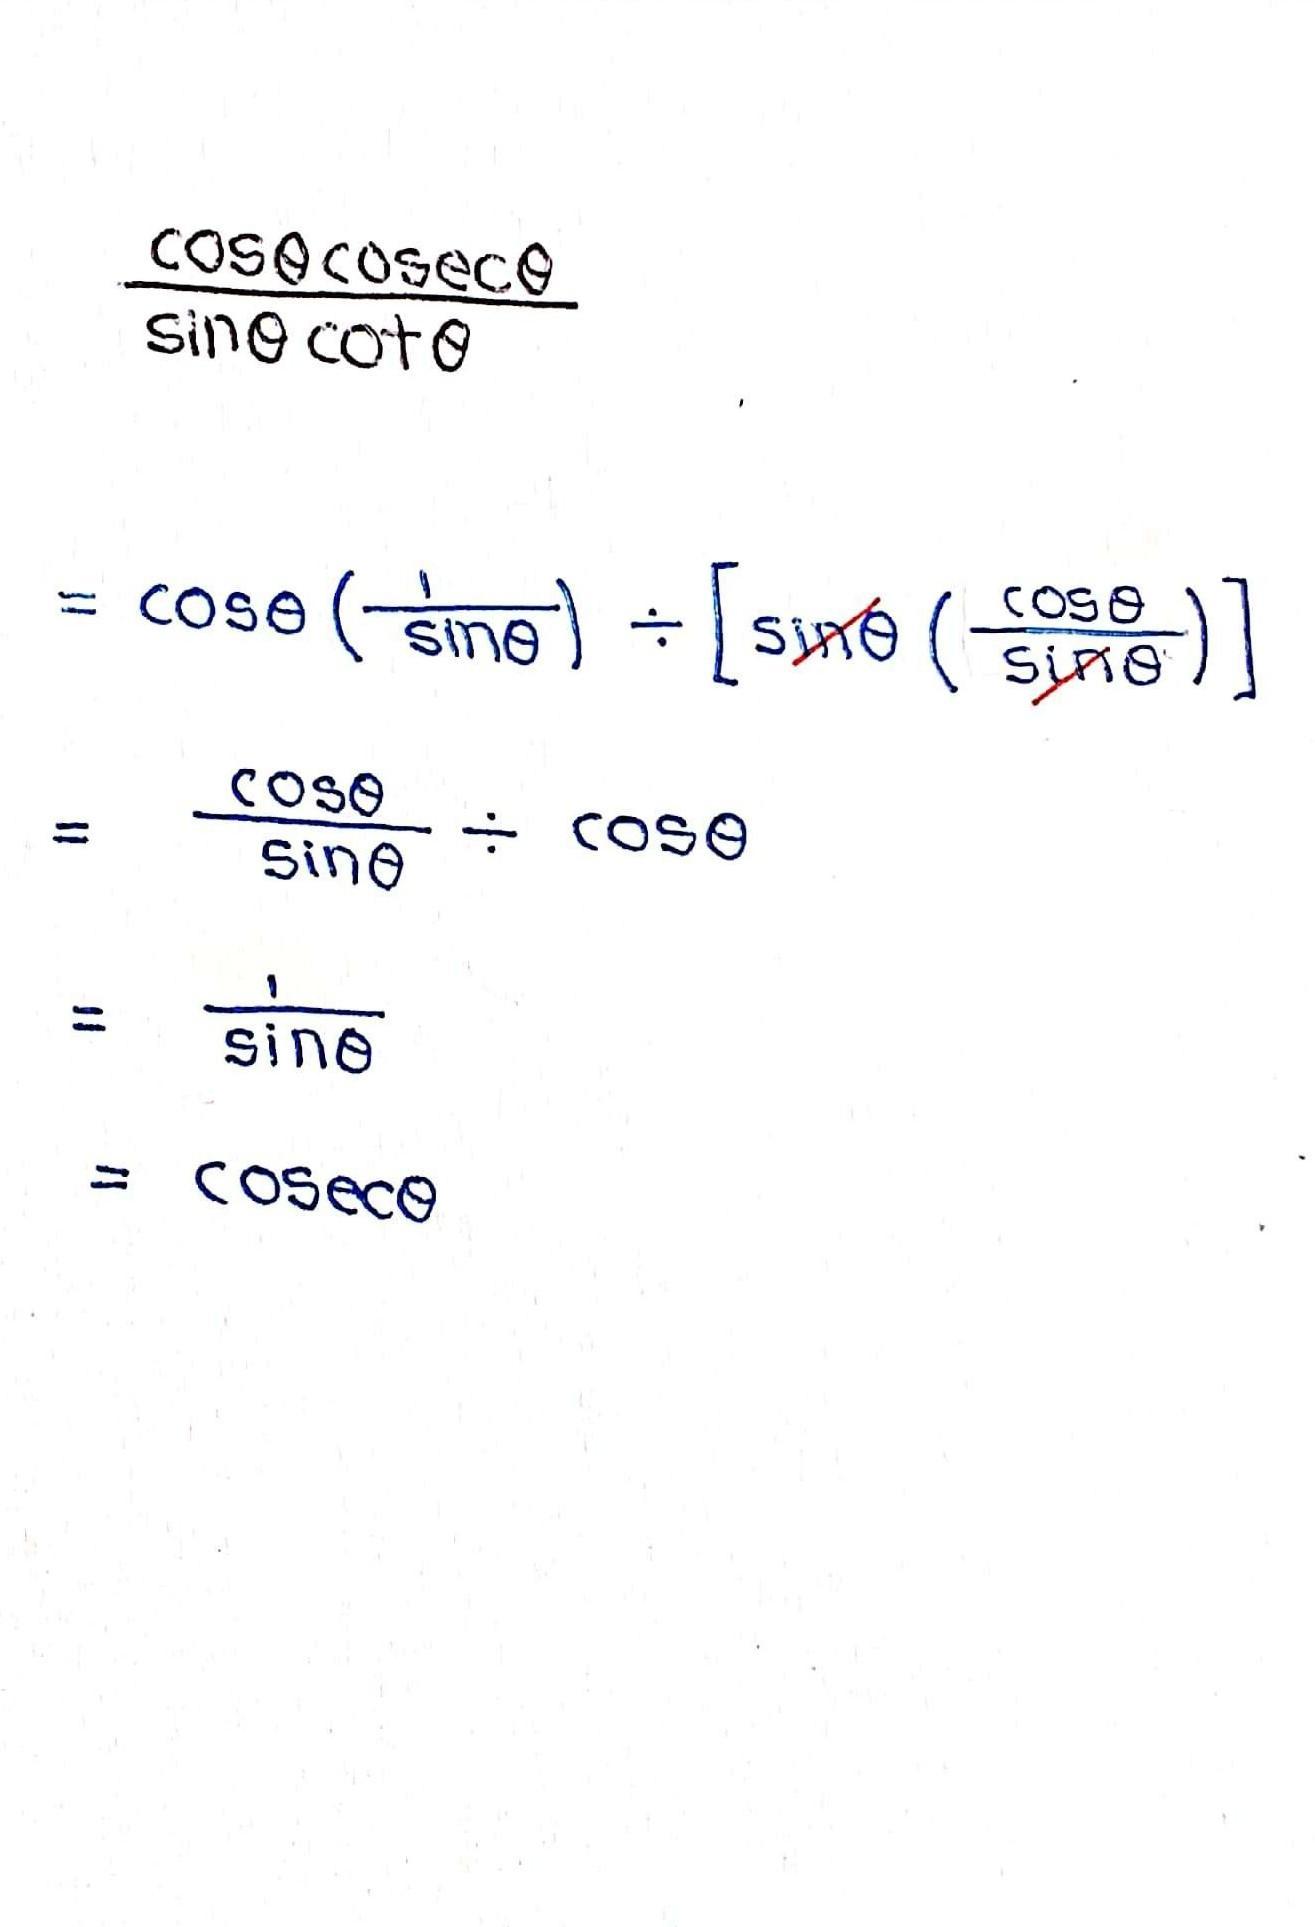 cosθ cosecθ
sinθ cotθ
= cosθ (1/sinθ) ÷ [sinθ (cosθ/sinθ)]
= cosθ/sinθ ÷ cosθ
= 1/sinθ
= cosecθ